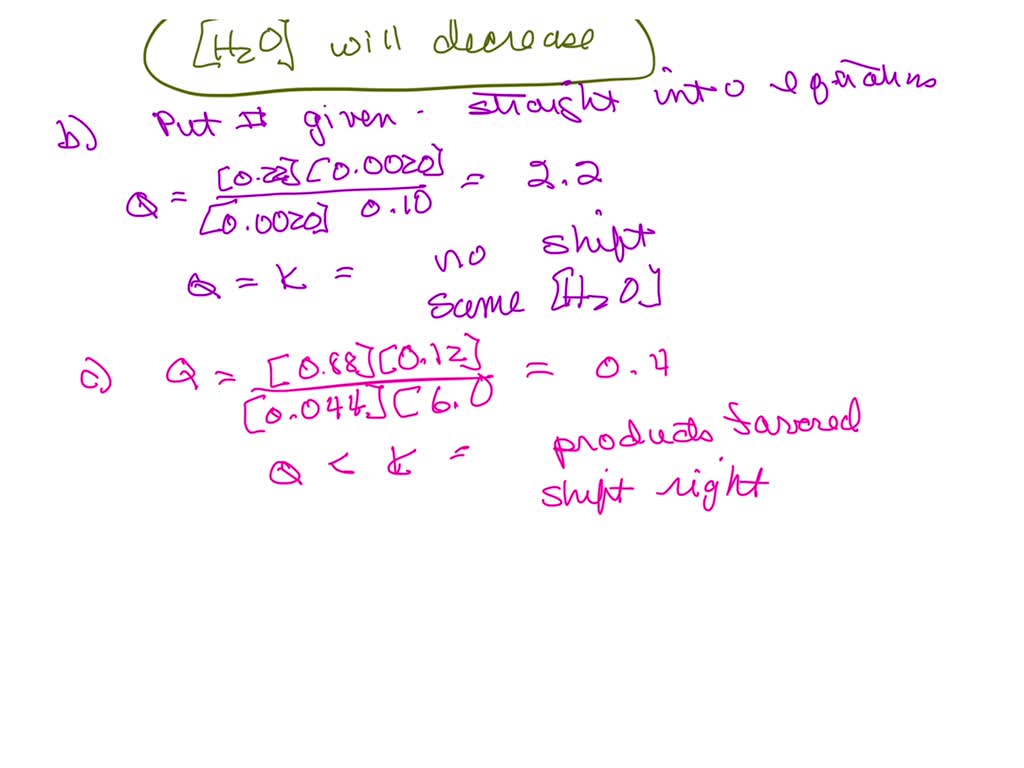 [H₂O] will decrease
b) Put # given - straight into equations
Q = [0.22][0.0020] / [0.0020] 0.10 = 2.2
Q = K = no shift
same [H₂O]
c) Q = [0.88][0.12] / [0.044][6.0 = 0.4
Q < K = products favored
shift right